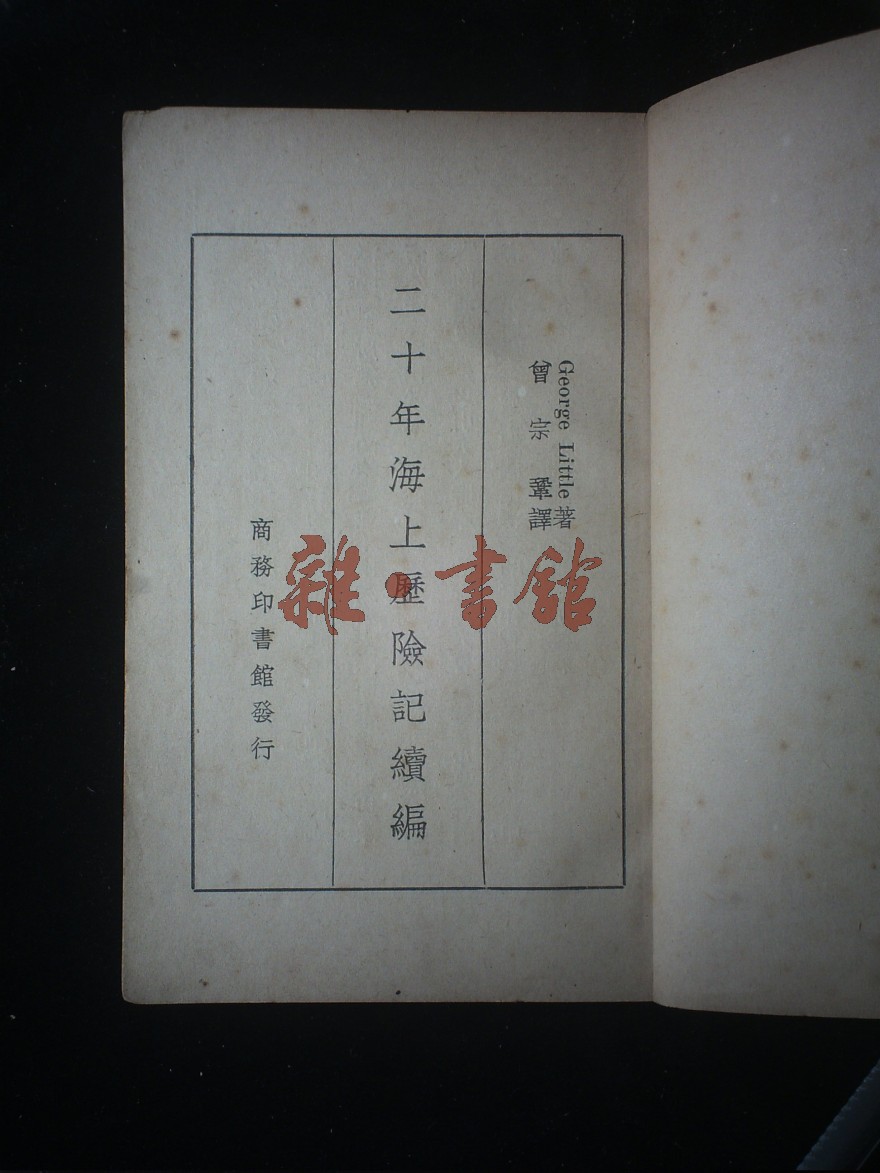 George Little著
曾宗鞏譯
二十年海上歷險記續編
商務印書館發行
雜·書館